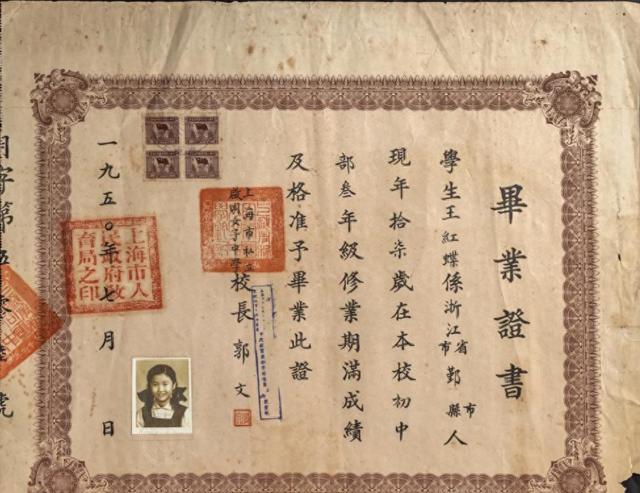 畢業證書
學生王紅蝶係浙江省市鄞縣市人
現年拾柒歲在本校初中
部叁年級修業期滿成績
及格准予畢業此證
上海市私立
啟明女子中學校長郭文
一九五〇年七月日
上海市人民政府教育局之印
字第
號